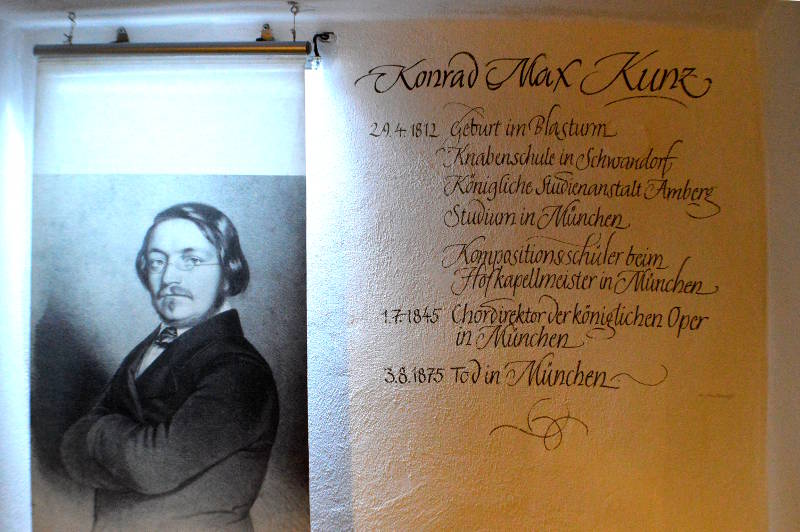 Konrad Max Kunz
29.4.1812 Geburt im Blasturm
Knabenschule in Schwandorf
Königliche Studienanstalt Amberg
Studium in München
Kompositionsschüler beim
Hofkapellmeister in München
1.7.1845 Chordirektor der königlichen Oper
in München
3.8.1875 Tod in München